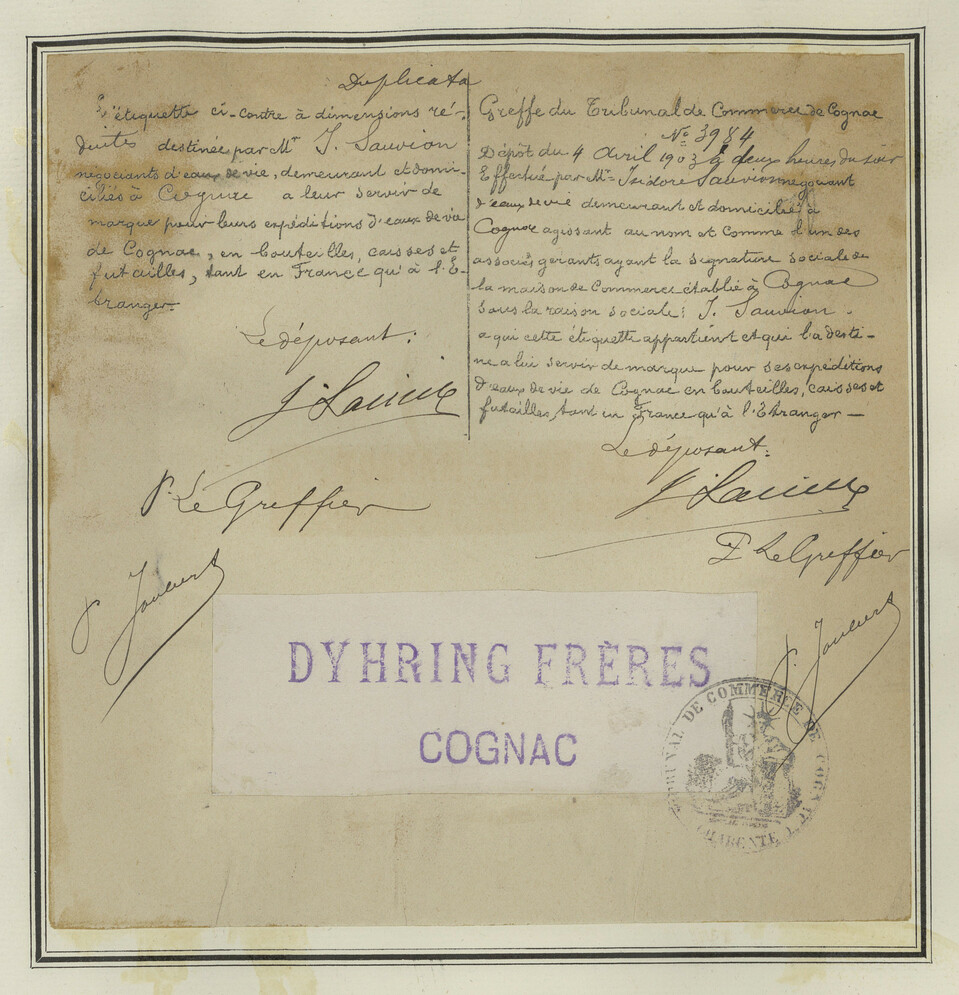 Duplicata
L'étiquette ci-contre à dimensions ré-
duites destinée par Mr J. Sauvion
négociants d'eaux de vie, demeurant et domi-
ciliés à Cognac a leur servir de
marque pour leurs expéditions d'eaux de vie
de Cognac, en bouteilles, caisses et
futailles, tant en France qu'à l'É-
tranger.
Le déposant:
J. Sauvion
Pr Le Greffier
Greffe du Tribunal de Commerce de Cognac
No 3984
Dépôt du 4 Avril 1903 à deux heures du soir
Effectué par Mr Isidore Sauvion négociant
d'eaux de vie demeurant et domicilié à
Cognac agissant au nom et comme l'un des
associés gérants ayant la signature sociale de
la maison de Commerce établie à Cognac
sous la raison sociale: J. Sauvion.
a qui cette étiquette appartient et qui la desti-
ne a lui servir de marque pour ses expéditions
d'eaux de vie de Cognac en bouteilles, caisses et
futailles, tant en France qu'à l'Etranger—
Le déposant:
J. Sauvion
Pr Le Greffier
DYHRING FRÈRES
COGNAC
TRIBUNAL DE COMMERCE DE COGNAC
CHARENTE